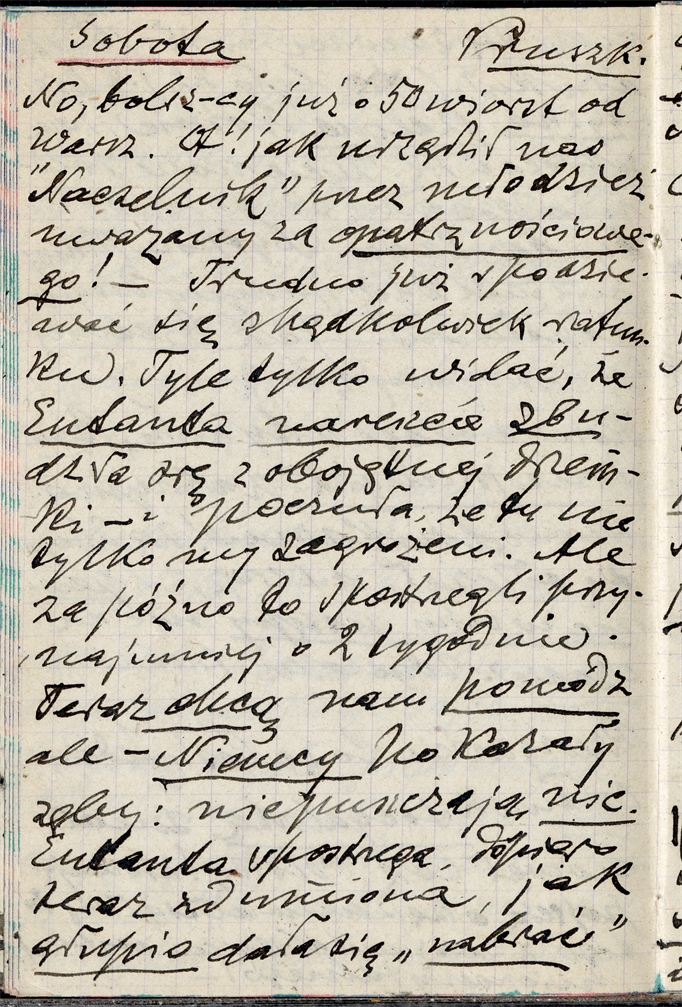 Sobota Pruszk.
No, bolsz-cy już o 50 wiorst od
Warsz. Ot! jak urządził nas
"Naczelnik" przez młodzież
uważany za opatrznościowe-
go! — Trudno już spodzie-
wać się skądkolwiek ratun-
ku. Tyle tylko widać, że
Entanta nareszcie zbu-
dziła się z obojętnej drzem-
ki – i poczuła, że tu nie
tylko my zagrożeni. Ale
za późno to spostregli przy-
najmniej o 2 tygodnie.
Teraz chcą nam pomódz
ale – Niemcy pokazały
zęby: nieprzepuszczają nic.
Entanta spostrzega, dopiero
teraz zdumiona, jak
głupio dała się „nabrać"